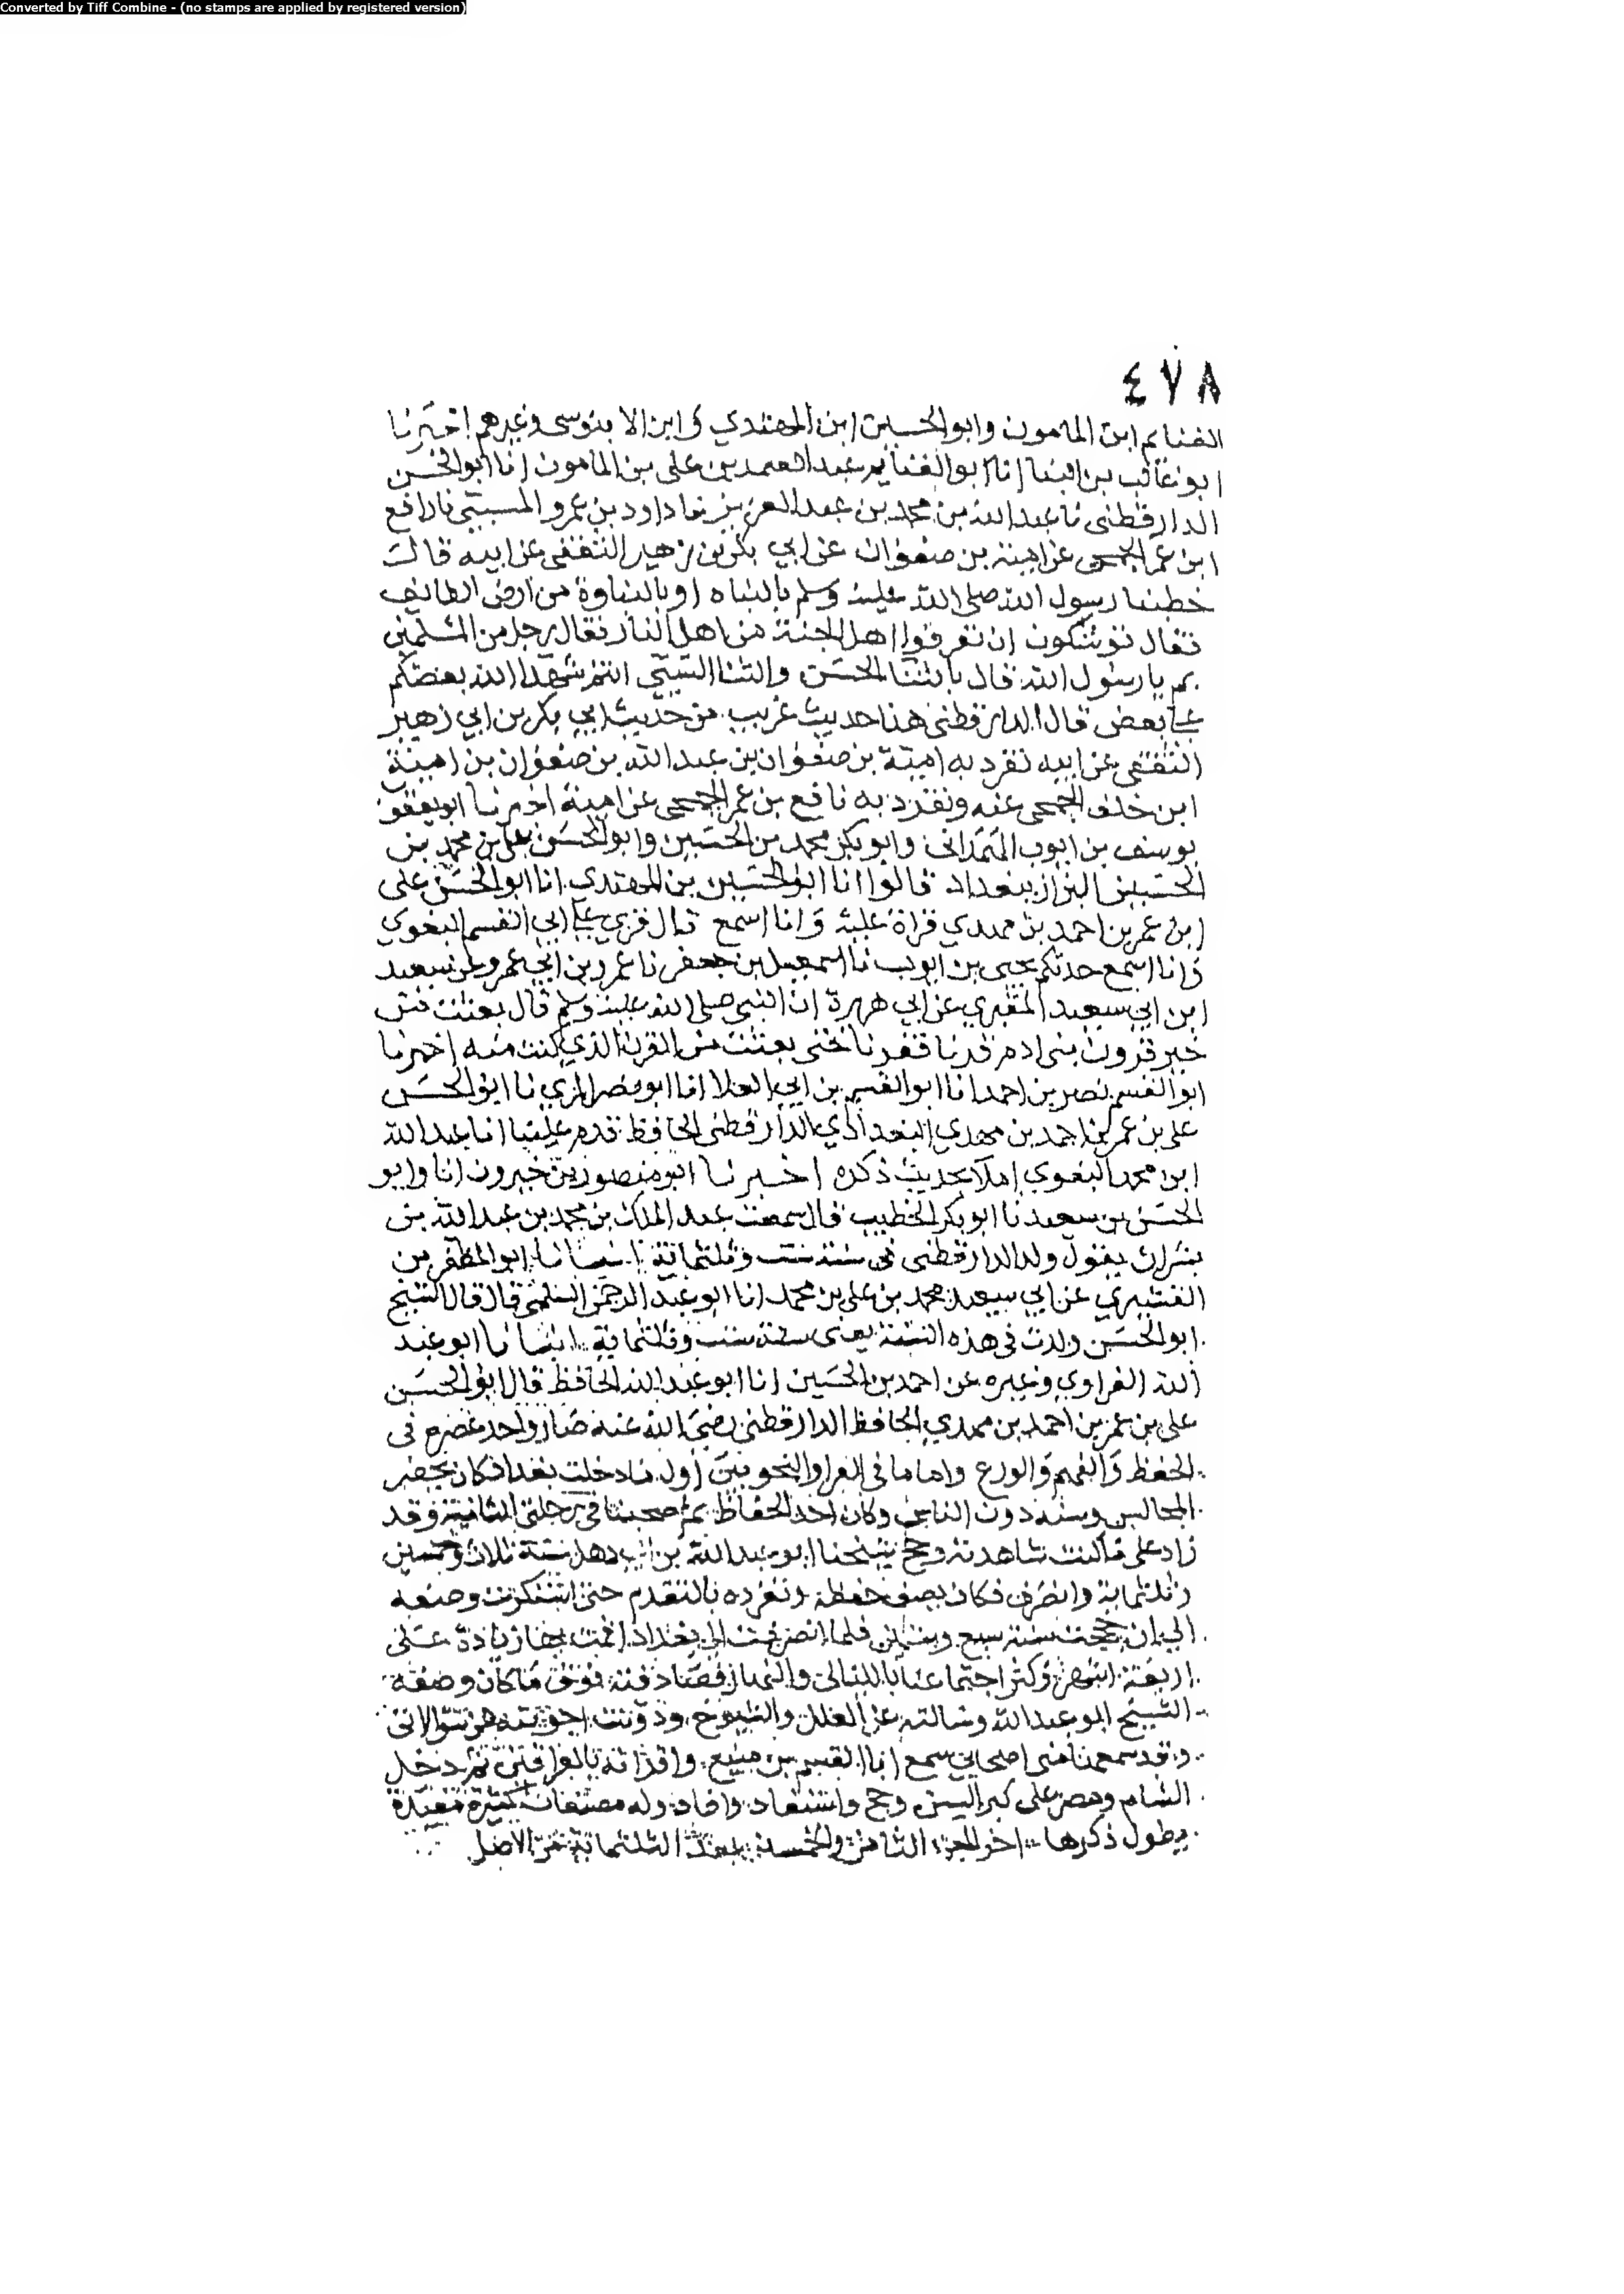 Converted by Tiff Combine - (no stamps are applied by registered version)
٤٧٨
الغنايم ابن المامون وابو الحسين ابن المهتدي وابن الابنوسى وغيرهم اخبرنا
ابو غالب بن البنا انا ابو الغنايم عبد الصمد بن على بن المامون انا ابو الحسن
الدارقطنى نا عبد الله بن محمد بن عبد العزيز نا داود بن عمرو المسيبى نا نافع
ابن عمر الجمحى عن امية بن صفوان عن ابي بكر بن زهير الثقفى عن ابيه قال
خطبنا رسول الله صلى الله عليه وسلم بالنباه او بالنباوة من ارض الطايف
فقال توشكون ان تعرفوا اهل الجنة من اهل النار فقال رجل من المسلمين
بم يا رسول الله قال بالثنا الحسن والثنا السيى انتم شهدا الله بعضكم
على بعض قال الدارقطنى هذا حديث غريب من حديث ابي بكر بن ابي زهير
الثقفى عن ابيه تفرد به امية بن صفوان بن عبد الله بن صفوان بن امية
ابن خلف الجمحى عنه وتفرد به نافع بن عمر الجمحى عن امية اخبرنا ابو يعقوب
يوسف بن ايوب الهمذانى وابو بكر محمد بن الحسين وابو الحسن على بن محمد بن
الحسين البزاز ببغداد قالوا انا ابو الحسين بن المهتدي انا ابو الحسن على
ابن عمر بن احمد بن مهدي قراة عليه وانا اسمع قال قري على ابي القسم البغوي
وانا اسمع حدثكم يحيى بن ايوب نا اسمعيل بن جعفر نا عمرو بن ابي عمرو عن سعيد
ابن ابي سعيد المقبري عن ابي هريرة ان النبى صلى الله عليه وسلم قال بعثت من
خير قرون بنى ادم قرنا فقرنا حتى بعثت من القرن الذي كنت منه اخبرنا
ابو القسم نصر بن احمد انا ابو القسم بن ابي العلا انا ابو نصر المري نا ابو الحسن
على بن عمر بن احمد بن مهدي البغدادي الدارقطنى الحافظ قدم علينا انا عبد الله
ابن محمد البغوي املا بحديث ذكره اخبرنا ابو منصور بن خيرون انا وابو
الحسن بن سعيد نا ابو بكر الخطيب قال سمعت عبد الملك بن محمد بن عبد الله بن
بشران يقول ولد الدارقطنى فى سنة ست وثلثماية انبانا ابو المظفر بن
القشيري عن ابي سعيد محمد بن على بن محمد انا ابو عبد الرحمن السلمى قال قال الشيخ
ابو الحسن ولدت فى هذه السنة يعنى سنة ست وثلثماية انبانا ابو عبد
الله الفراوي وغيره عن احمد بن الحسين انا ابو عبد الله الحافظ قال ابو الحسن
على بن عمر بن احمد بن مهدي الحافظ الدارقطنى رضى الله عنه صار واحد عصره فى
الحفظ والفهم والورع واماما فى القرا والنحويين اول ما دخلت بغداد كان يحضر
المجالس وسنه دون الناس وكان احد الحفاظ ثم صحبنا فى رحلتى الثانية وقد
زاد على ما كنت شاهدته وحج شيخنا ابو عبد الله بن ابي ذهل سنة ثلاث وخمسين
وثلثماية وانصرف فكان يصف حفظه وتفرده بالتقدم حتى استنكرت وصفه
الى ان حججت سنة سبع وستين فلما انصرفت الى بغداد اقمت بها زيادة على
اربعة اشهر وكثر اجتماعنا بالليالى والنهار فصادفته فوق ما كان وصفه
الشيخ ابو عبد الله وسالته عن العلل والشيوخ ودونت اجوبته عن سوالاتى
وقد سمعها منى اصحابي سمع ابا القسم بن منيع واقرانه بالعراقين ثم دخل
الشام ومصر على كبر السن وحج واستفاد وافاد وله مصنفات كثيرة مفيدة
يطول ذكرها اخر الجزء الثامن والخمسين بعد الثلثماية من الاصل